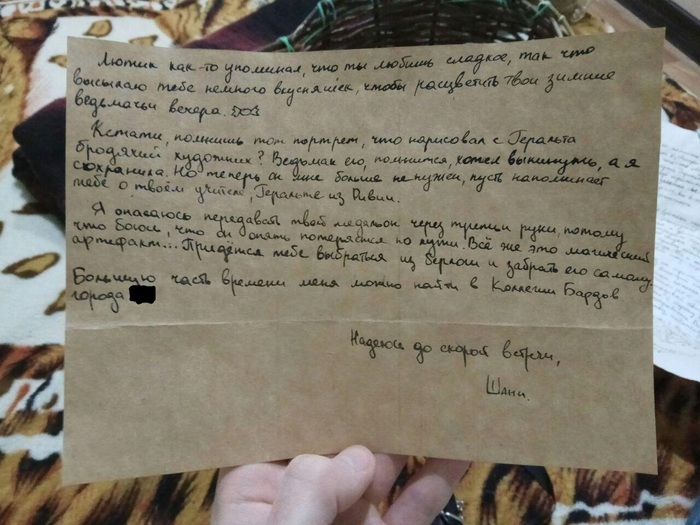 Лютик как-то упоминал, что ты любишь сладкое, так что
высылаю тебе немного вкусняшек, чтобы расцветить твои зимние
ведьмачьи вечера.
Кстати, помнишь тот портрет, что нарисовал с Геральта
бродячий художник? Ведьмак его, помнится, хотел выкинуть, а я
сохранила. Но теперь он мне больше не нужен, пусть напоминает
тебе о твоём учителе, Геральте из Ривии.
Я опасаюсь передавать твой медальон через третьи руки, потому
что боюсь, что он опять потеряется по пути. Всё же это магический
артефакт... Придётся тебе выбраться из берлоги и забрать его самому.
Большую часть времени меня можно найти в Коллегии Бардов
города
Надеюсь до скорой встречи,
Шани.